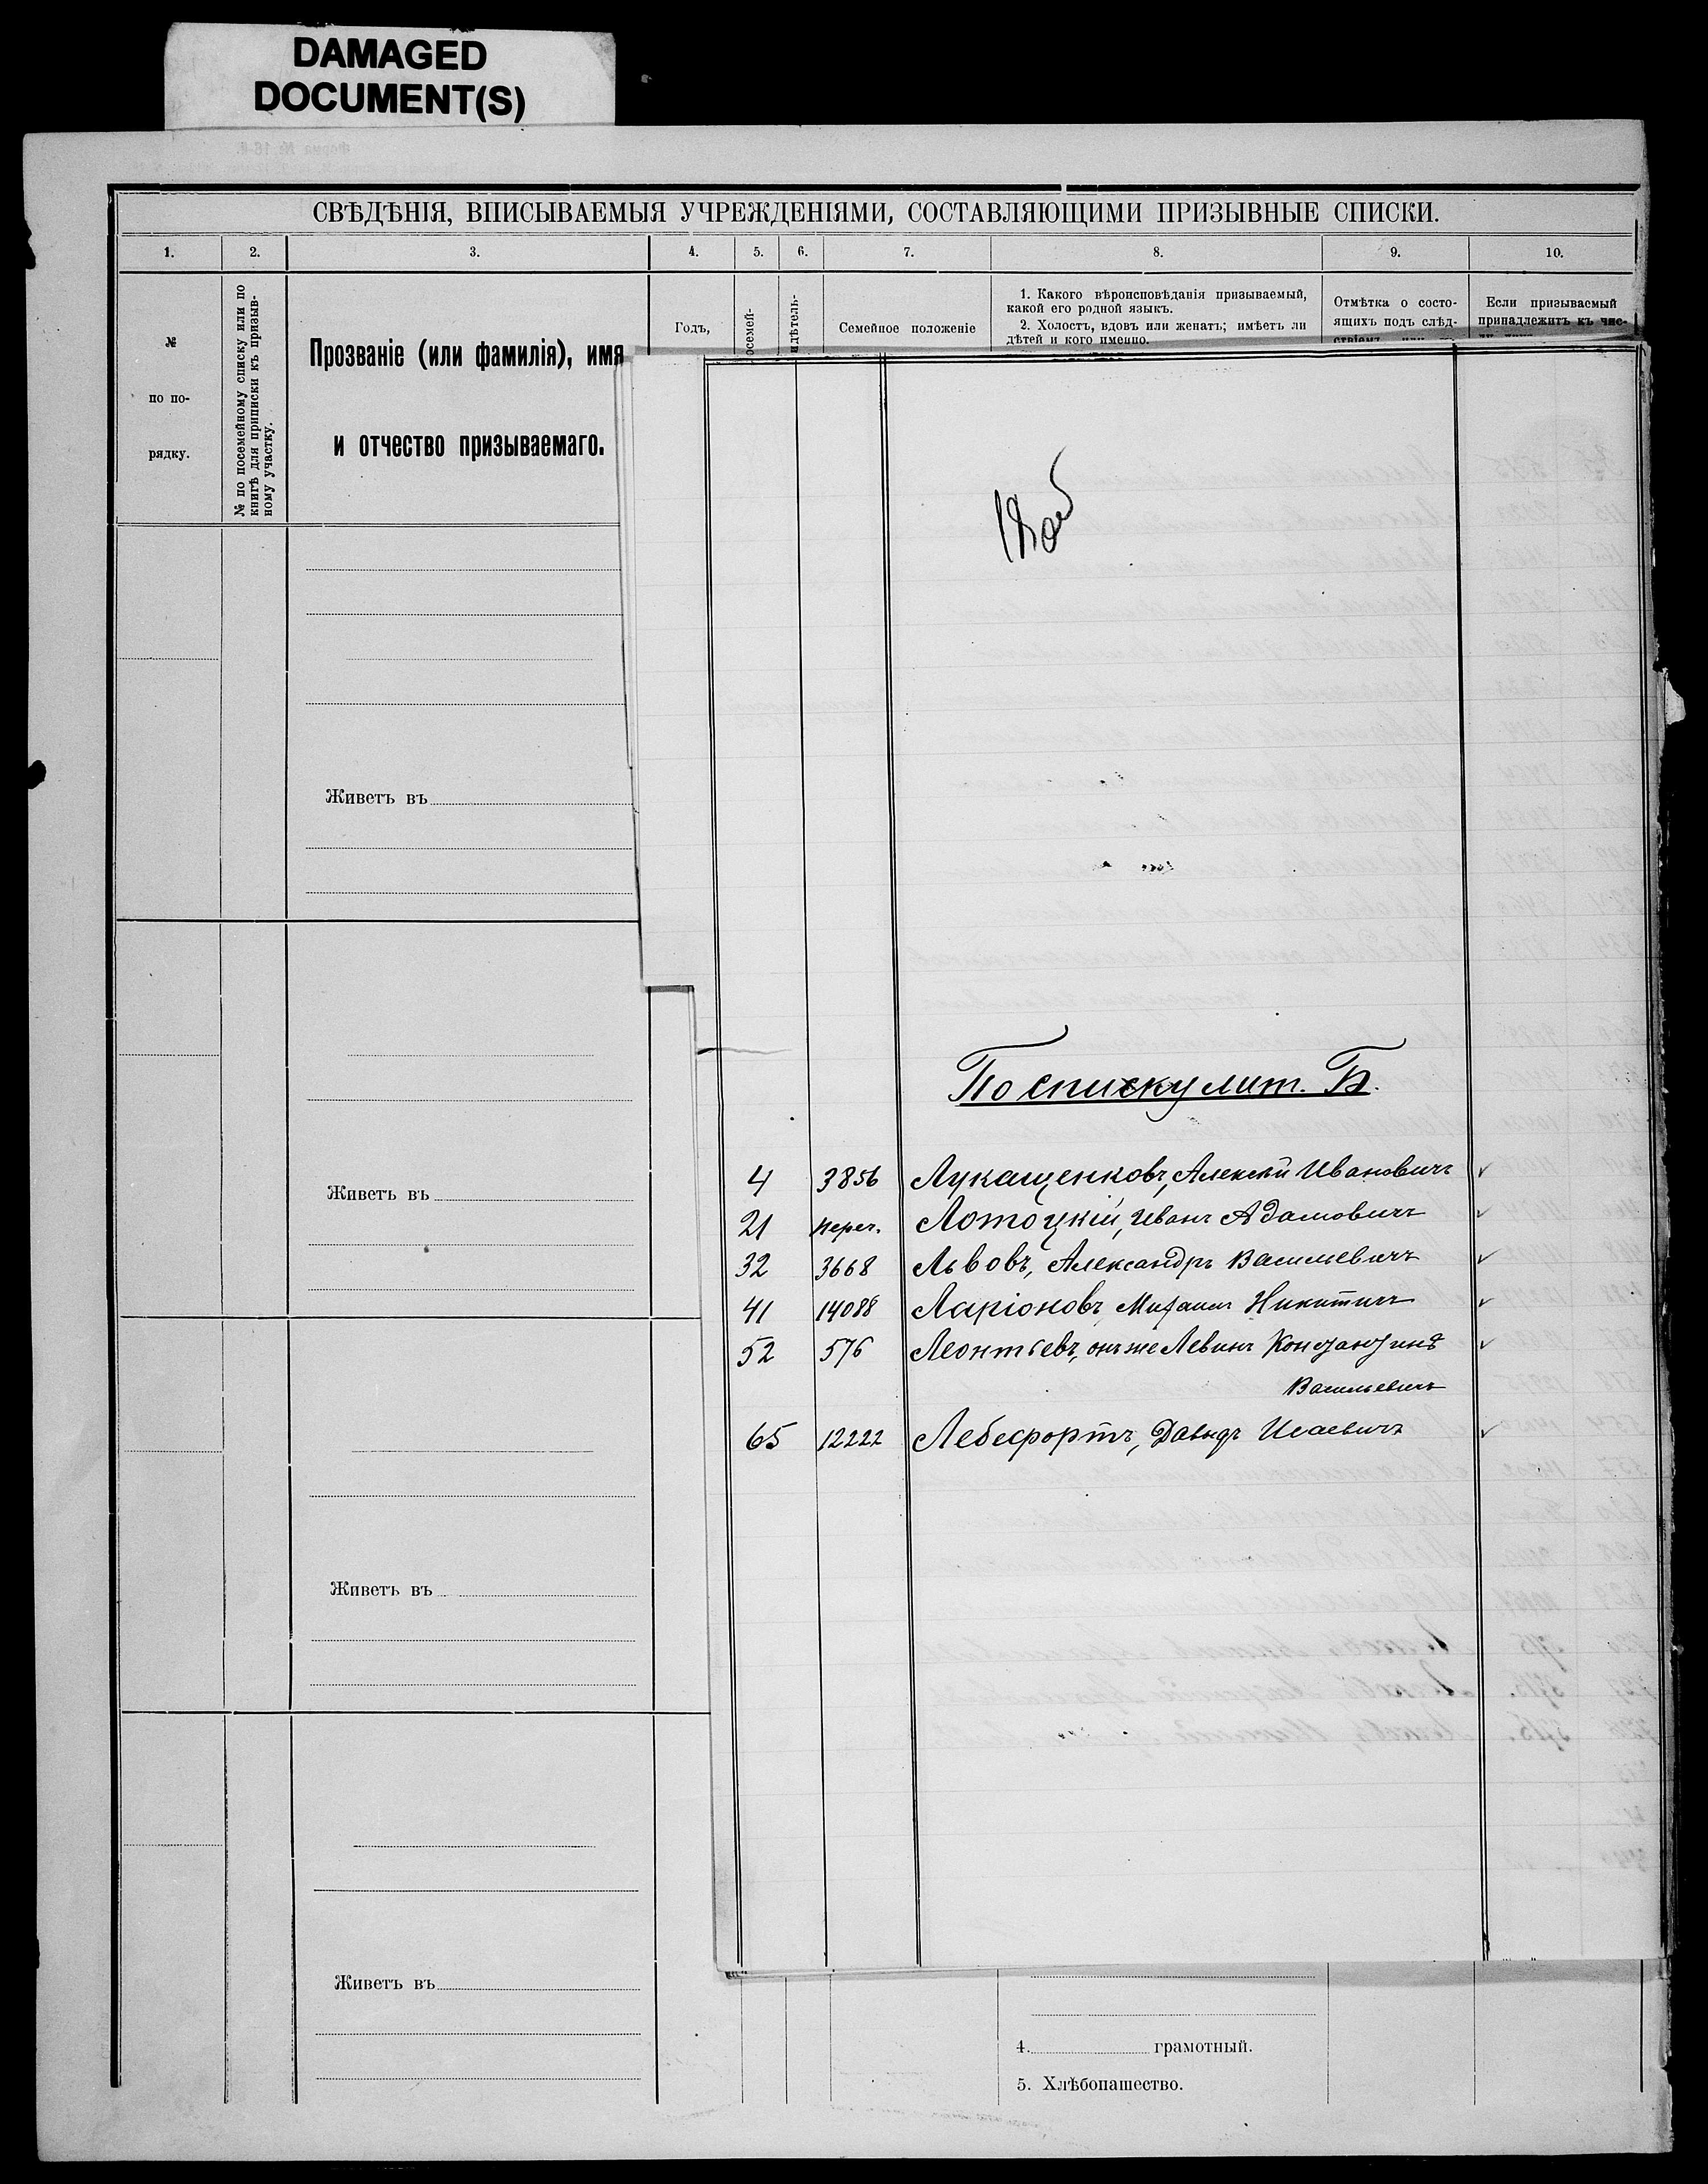 DAMAGED
DOCUMENT(S)
СВѢДѢНІЯ, ВПИСЫВАЕМЫЯ УЧРЕЖДЕНІЯМИ, СОСТАВЛЯЮЩИМИ ПРИЗЫВНЫЕ СПИСКИ.
1. 2. 3. 4. 5. 6. 7. 8. 9. 10.
№
по по-
рядку.
№ по посемейному списку или по
книгѣ для приписки къ призыв-
ному участку.
Прозваніе (или фамилія), имя
и отчество призываемаго.
Годъ,
осемей-
идѣтель-
Семейное положеніе
1. Какого вѣроисповѣданія призываемый,
какой его родной языкъ.
2. Холостъ, вдовъ или женатъ; имѣетъ ли
дѣтей и кого именно.
Отмѣтка о состо-
ящихъ подъ слѣд-
Если призываемый
принадлежитъ къ чис-
Живетъ въ
По списку лит. Б.
4 3856 Лукащенковъ, Алексѣй Ивановичъ ✓
21 переч. Лотоцкій, Иванъ Адамовичъ ✓
32 3668 Львовъ, Александръ Васильевичъ ✓
41 14088 Ларіоновъ, Михаилъ Никитичъ ✓
52 576 Леонтьевъ, онъ же Левинъ Константинъ ✓
Васильевичъ
65 12222 Лебефортъ, Давидъ Исаевичъ ✓
Живетъ въ
Живетъ въ
Живетъ въ
4. грамотный.
5. Хлѣбопашество.